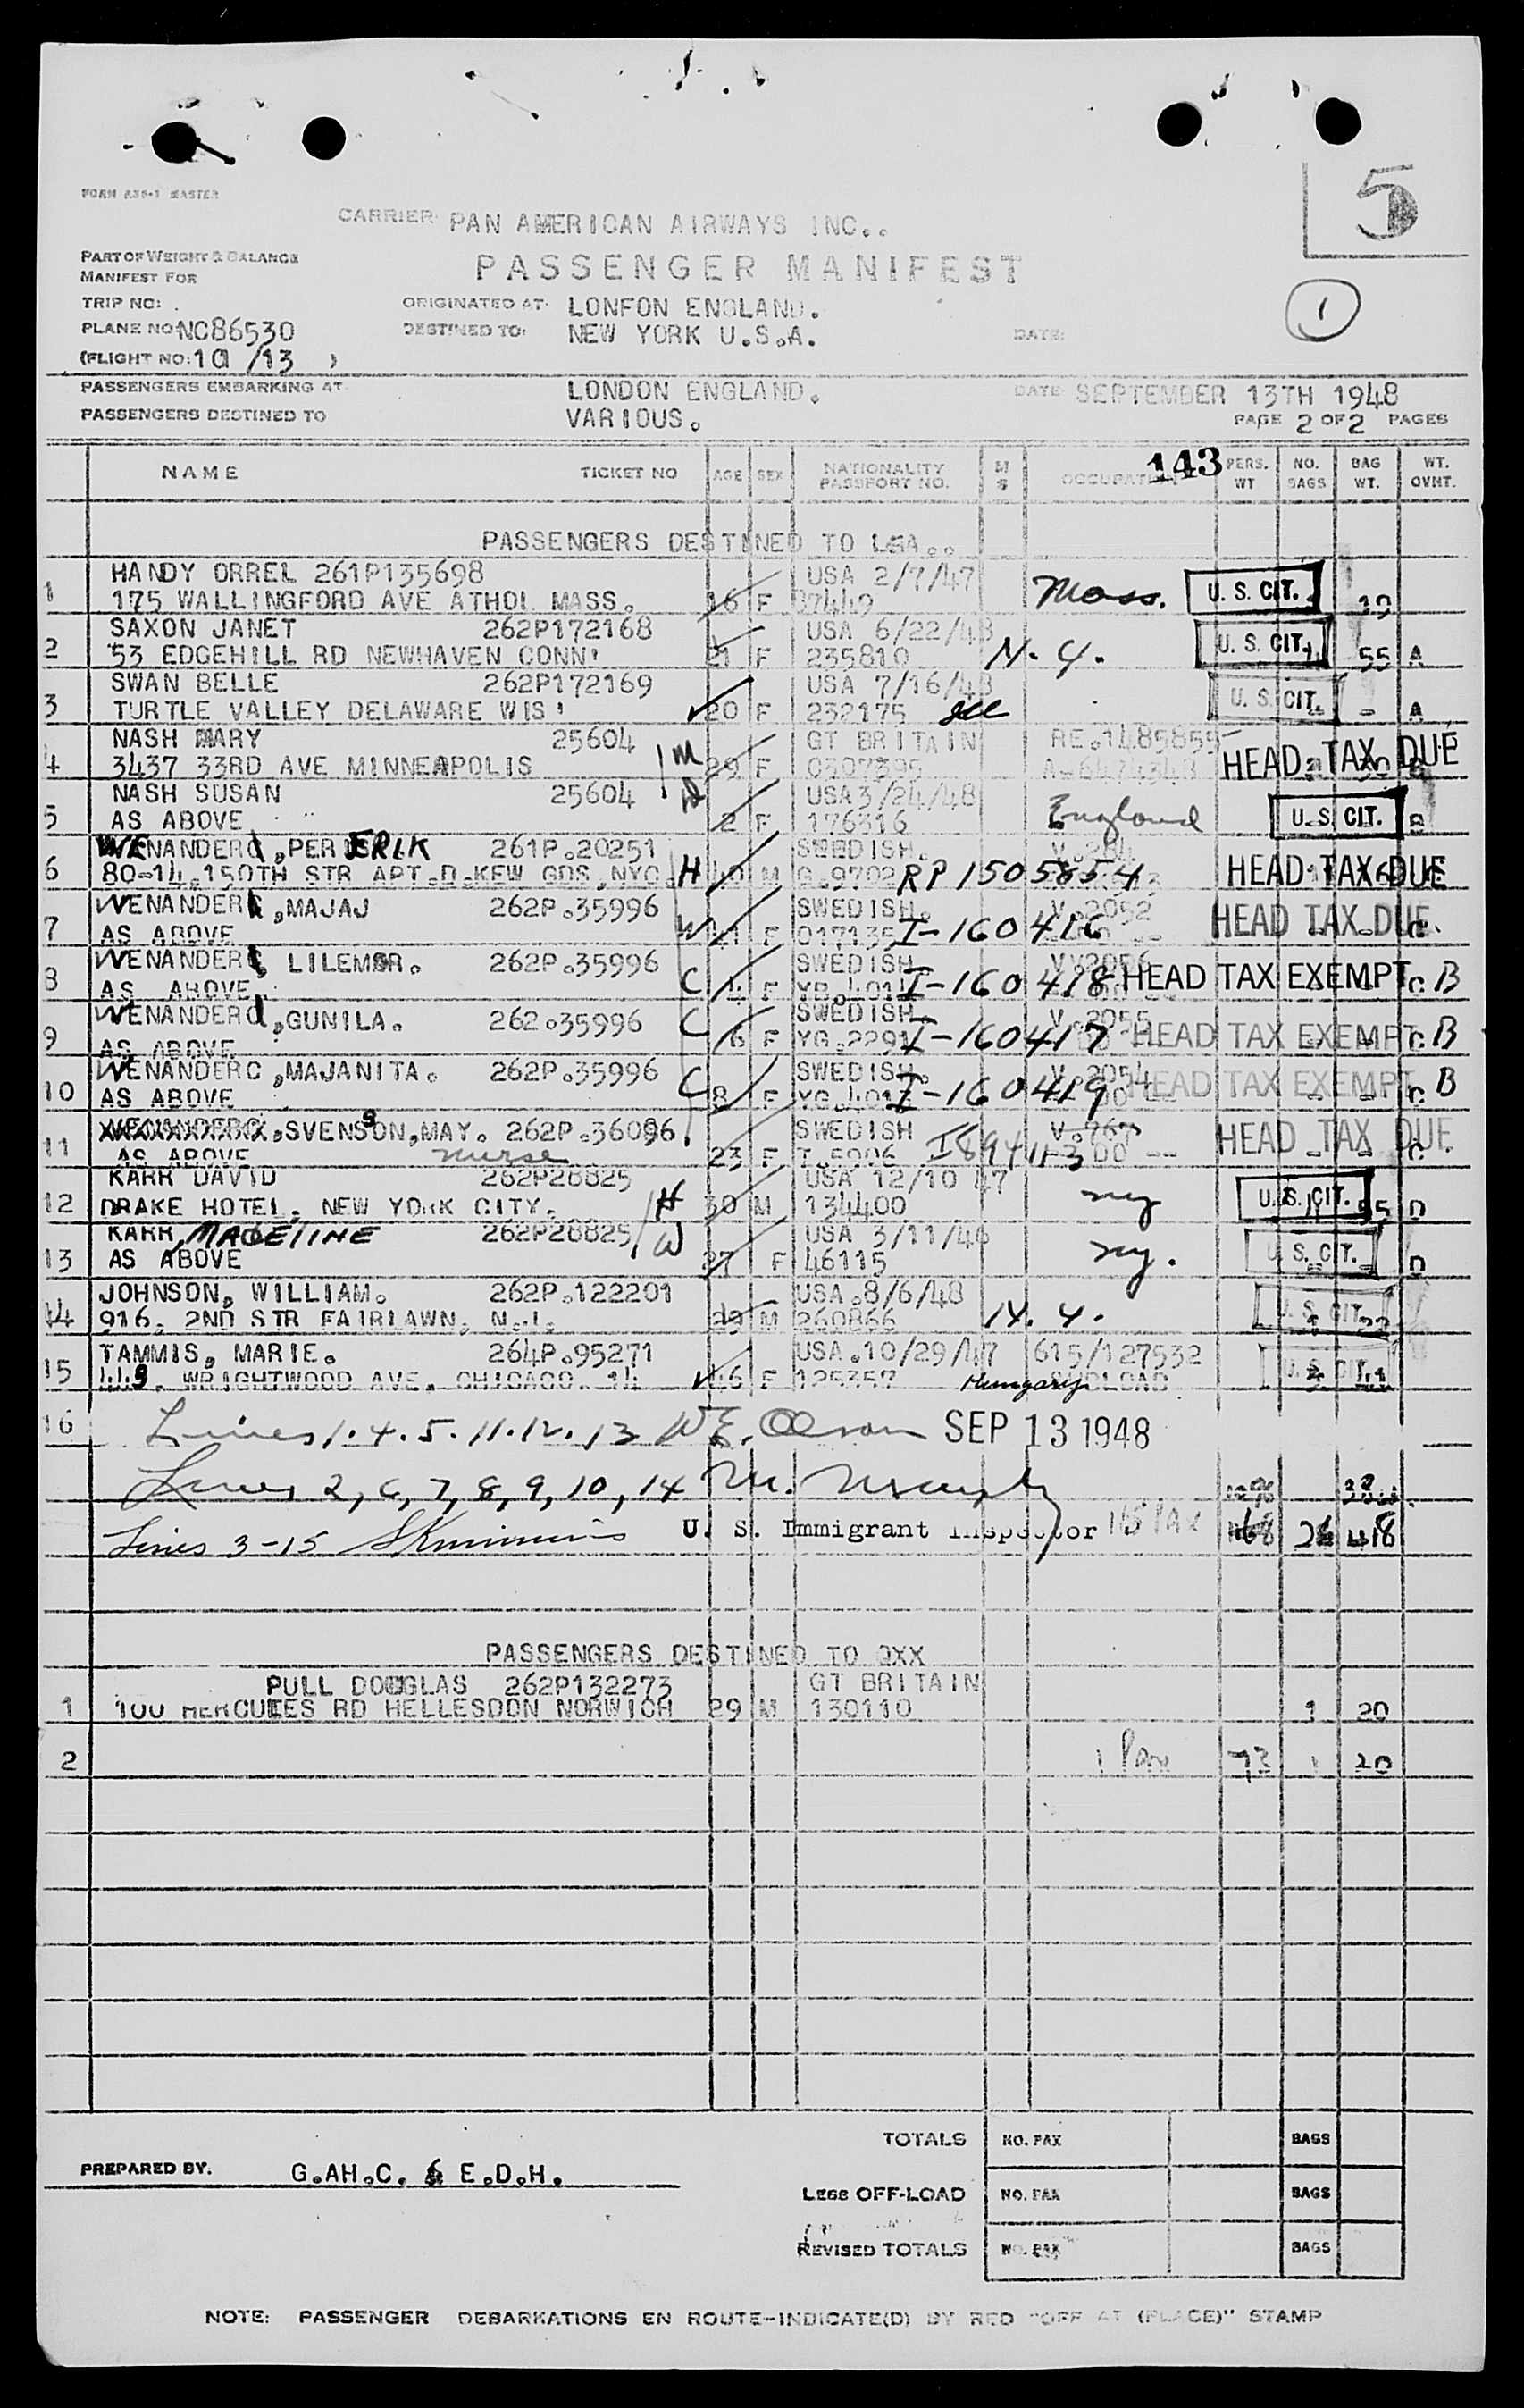 FORM A35-1 MASTER
5
CARRIER PAN AMERICAN AIRWAYS INC..
PART OF WEIGHT & BALANCE
MANIFEST FOR
PASSENGER MANIFEST
1
TRIP NO: .
ORIGINATED AT LONFON ENGLAND.
PLANE NO: NC86530
DESTINED TO: NEW YORK U.S.A.
DATE:
(FLIGHT NO: 101/13 )
PASSENGERS EMBARKING AT LONDON ENGLAND.
DATE SEPTEMBER 13TH 1948
PASSENGERS DESTINED TO VARIOUS.
PAGE 2 OF 2 PAGES
143
NAME TICKET NO AGE SEX NATIONALITY PASSPORT NO. M S OCCUPATION PERS. WT NO. BAGS BAG WT. WT. OVNT.
PASSENGERS DESTINED TO LGA..
HANDY ORREL 261P135698 USA 2/7/47
1 175 WALLINGFORD AVE ATHOL MASS. 16 F 37449 Mass. U. S. CIT. 19
SAXON JANET 262P172168 USA 6/22/48
2 53 EDGEHILL RD NEWHAVEN CONN' 21 F 235810 N. Y. U. S. CIT. 55 A
SWAN BELLE 262P172169 USA 7/16/48
3 TURTLE VALLEY DELAWARE WIS' 20 F 232175 U. S. CIT. - A
NASH MARY 25604 GT BRITAIN RE.1485855
4 3437 33RD AVE MINNEAPOLIS M 29 F C307395 HEAD TAX DUE
NASH SUSAN 25604 USA 3/24/48
5 AS ABOVE D 2 F 176316 England U. S. CIT. B
WENANDERC, PER ERIK 261P.20251 SWEDISH.
6 80-14.150TH STR APT.D.KEW GDS.NYC. H 40 M G.9702 RP 1505854 HEAD TAX DUE
WENANDER, MAJAJ 262P.35996 SWEDISH. V.2052
7 AS ABOVE W 41 F 017135 I-160416 HEAD TAX DUE
WENANDER, LILEMOR. 262P.35996 SWEDISH
8 AS ABOVE C 4 F I-160418 HEAD TAX EXEMPT C B
WENANDERC, GUNILA. 262.35996 SWEDISH. V.2055
9 AS ABOVE C 6 F YG.2291 I-160417 HEAD TAX EXEMPT C B
WENANDERC, MAJANITA. 262P.35996 SWEDISH. V.2054
10 AS ABOVE C 8 F I-160419 HEAD TAX EXEMPT C B
11 XXXXXXXXXX, SVENSON, MAY. 262P.36096 SWEDISH
AS ABOVE nurse 23 F T.5906 HEAD TAX DUE C
KARR DAVID 262P28825 USA 12/10 47
12 DRAKE HOTEL. NEW YORK CITY. H 30 M 134400 ny U. S. CIT. 95 D
KARR, MADELINE 262P28825 USA 3/11/46
13 AS ABOVE W 27 F 46115 ny. U. S. CIT. D
JOHNSON, WILLIAM. 262P.122201 USA.8/6/48
14 916. 2ND STR FAIRLAWN, N.J. 29 M 260866 N. Y. U. S. CIT. 32
TAMMIS, MARIE. 264P.95271 USA.10/29/47 615/127532
15 449. WRIGHTWOOD AVE. CHICAGO. 14 46 F 125357 Hungary U. S. CIT.
16 Lines 1.4.5.11.12.13 W.E. Olsson SEP 13 1948
Lines 2,6,7,8,9,10,14 M. Murphy
Lines 3-15 U. S. Immigrant Inspector 15 PAX 1168 26 418
PASSENGERS DESTINED TO QXX
PULL DOUGLAS 262P132273 GT BRITAIN
1 100 HERCULES RD HELLESDON NORWICH 29 M 130110 1 20
2 1 Pax 73 1 20
TOTALS NO. PAX BAGS
PREPARED BY. G.AH.C. & E.D.H.
LESS OFF-LOAD NO. PAX BAGS
REVISED TOTALS NO. PAX BAGS
NOTE: PASSENGER DEBARKATIONS EN ROUTE-INDICATE(D) BY RED "OFF AT (PLACE)" STAMP